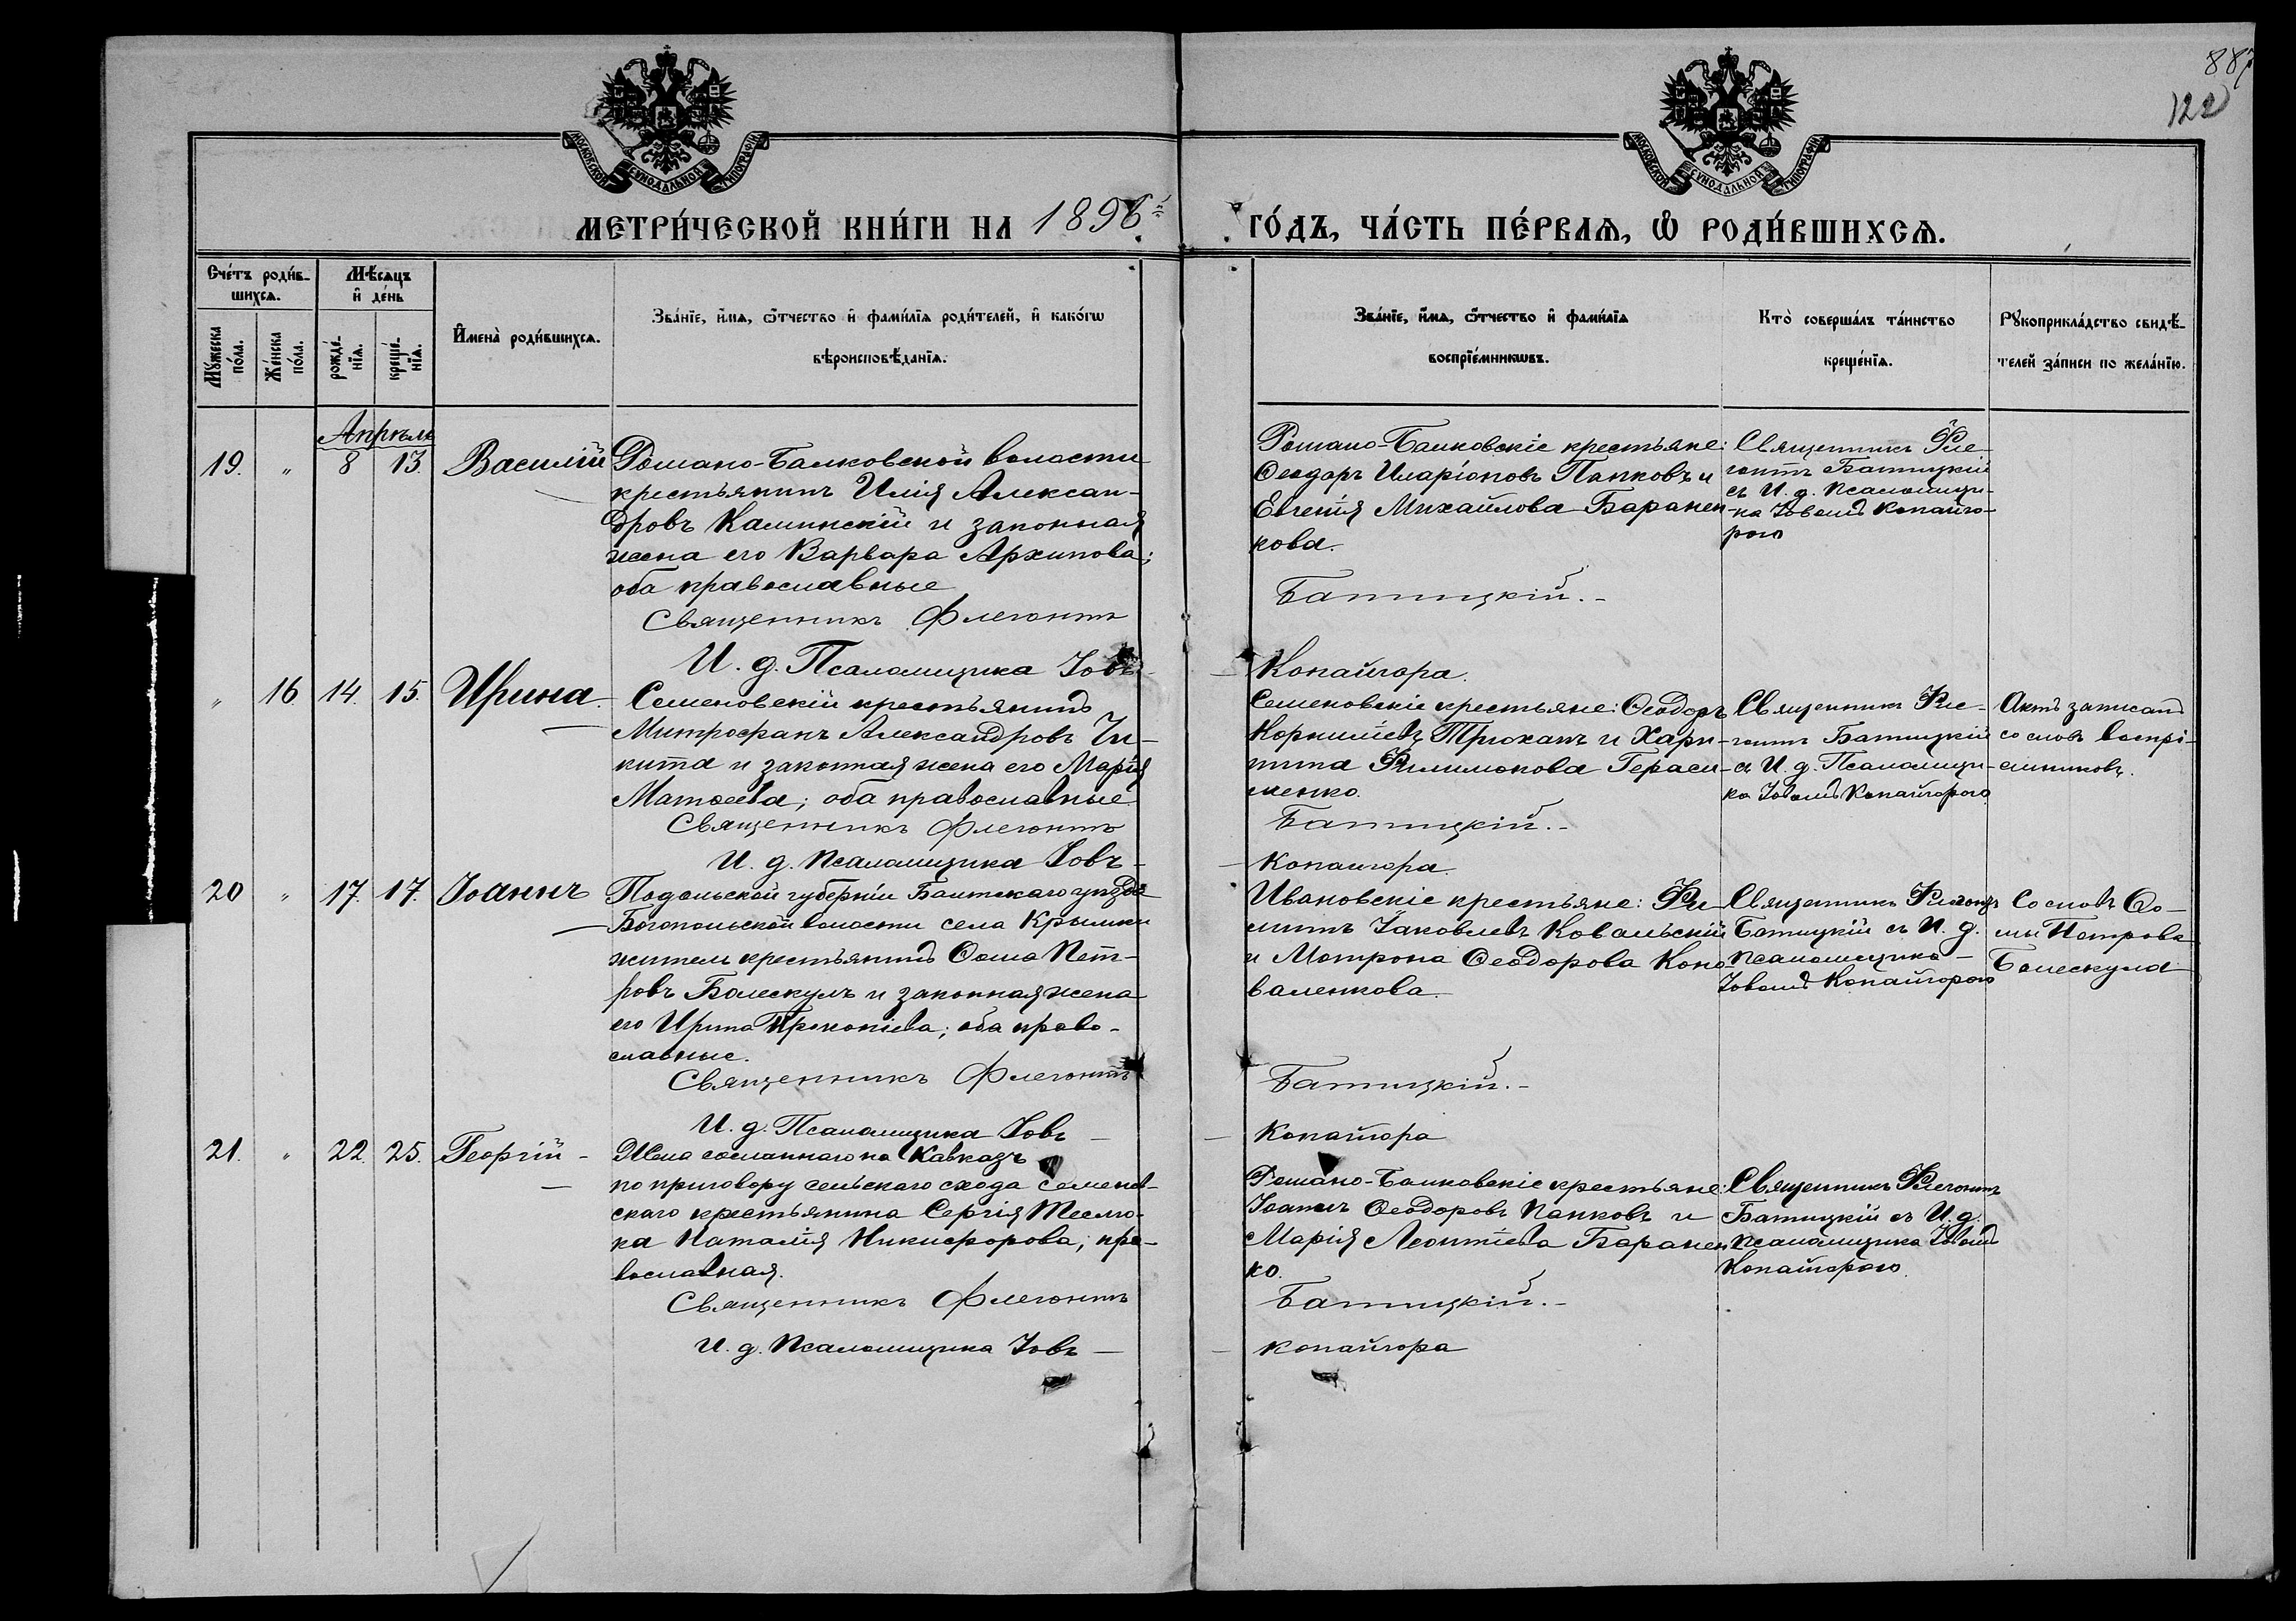 887
122
МОСКОВСКОЙ СѴНОДАЛЬНОЙ ТИПОГРАФІИ
МОСКОВСКОЙ СѴНОДАЛЬНОЙ ТИПОГРАФІИ
МЕТРИ́ЧЕСКОЙ КНИ́ГИ НА 1896й
ГО́ДЪ, ЧА́СТЬ ПЕ́РВАѦ, Ѽ РОДИ́ВШИХСѦ.
Сче́тъ роди́в-
шихсѧ.
Мѣсѧцъ
и҆ де́нь
Мꙋжеска по́ла.
Же́нска по́ла.
рожде́-
нїѧ.
креще́-
нїѧ.
И҆мена̀ роди́вшихсѧ.
Зва́нїе, и҆́мѧ, ѻ҆́тчество и҆ фами́лїѧ роди́телей, и҆ како́гѡ
вѣроисповѣ́данїѧ.
Зва́нїе, и҆́мѧ, ѻ҆́тчество и҆ фами́лїѧ
воспрїе́мникѡвъ.
Кто̀ соверша́лъ та́инство
креще́нїѧ.
Рꙋкоприкла́дство свидѣ́-
телей за́писи по жела́нїю.
Апрѣль
19. " 8 13. Василій
Романо-Балковской волости
крестьянинъ Илія Алексан-
дровъ Калинскій и законная
жена его Варвара Архипова;
оба православные
Священникъ Флегонтъ
И. д. Псаломщика Іовъ -
Романо-Балковскіе крестьяне:
Ѳеодоръ Иларіоновъ Папковъ и
Евгенія Михайлова Баранен-
кова.
Батицкій. -
- Копайгора.
Священникъ Фле-
гонтъ Батицкій
съ И. д. псаломщи-
ка Іовомъ Копайго-
рою
" 16 14. 15. Ирина.
Семеновскій крестьянинъ
Митрофанъ Александровъ Чи-
кита и законная жена его Марія
Матѳеева; оба православные
Священникъ Флегонтъ
И. д. псаломщика Іовъ -
Семеновскіе крестьяне: Ѳеодоръ
Корнилійевъ Трюханъ и Хари-
тина Филимонова Гераси-
менко.
Батицкій. -
- Копайгора.
Священникъ Фле-
гонтъ Батицкій
съ И. д. Псаломщи-
ка Іовомъ Копайгорою
Актъ записанъ
со словъ воспрі-
емниковъ.
20 " 17. 17. Іоаннъ
Подольской губерніи Балтскаго уѣзда
Богопольской волости села Крымки
житель крестьянинъ Ѳома Пет-
ровъ Балескулъ и законная жена
его Ирина Прокопіева; оба право-
славные.
Священникъ Флегонтъ
И. д. Псаломщика Іовъ -
Ивановскіе крестьяне: Фи-
липпъ Іаковлевъ Ковальскій
и Матрона Ѳеодорова Коно-
валенкова.
Батицкій. -
- Копайгора
Священникъ Флегонтъ
Батицкій съ И. д.
псаломщика -
Іовомъ Копайгорою
Со словъ Ѳо-
мы Петрова
Балескула
21. " 22. 25. Георгій -
Жена сосланнаго на Кавказъ
по приговору сельскаго схода Семенов-
скаго крестьянина Сергія Теслю-
ка Наталія Никифорова; пра-
вославная.
Священникъ Флегонтъ
И. д. Псаломщика Іовъ -
Романо-Балковскіе крестьяне:
Іоаннъ Ѳеодоровъ Папковъ и
Марія Леонтіева Баранен-
ко.
Батицкій. -
- Копайгора
Священникъ Флегонтъ
Батицкій съ И. д.
псаломщика Іовомъ
Копайгорою.